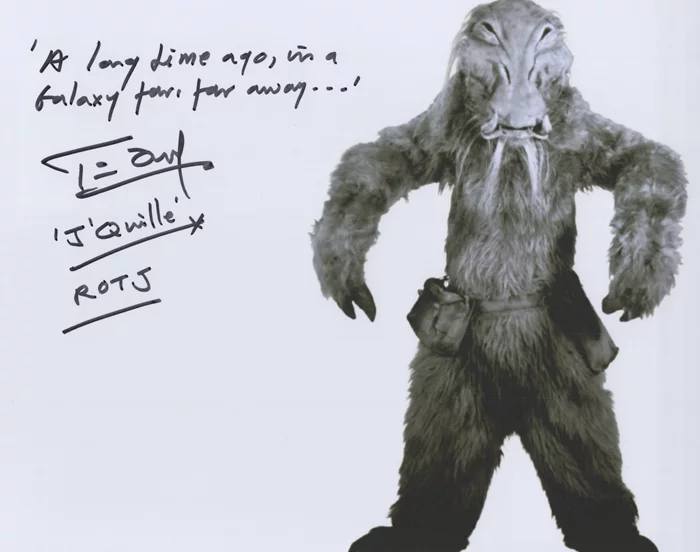 'A long time ago, in a
Galaxy far, far away....'
'J'Quille' x
ROTJ